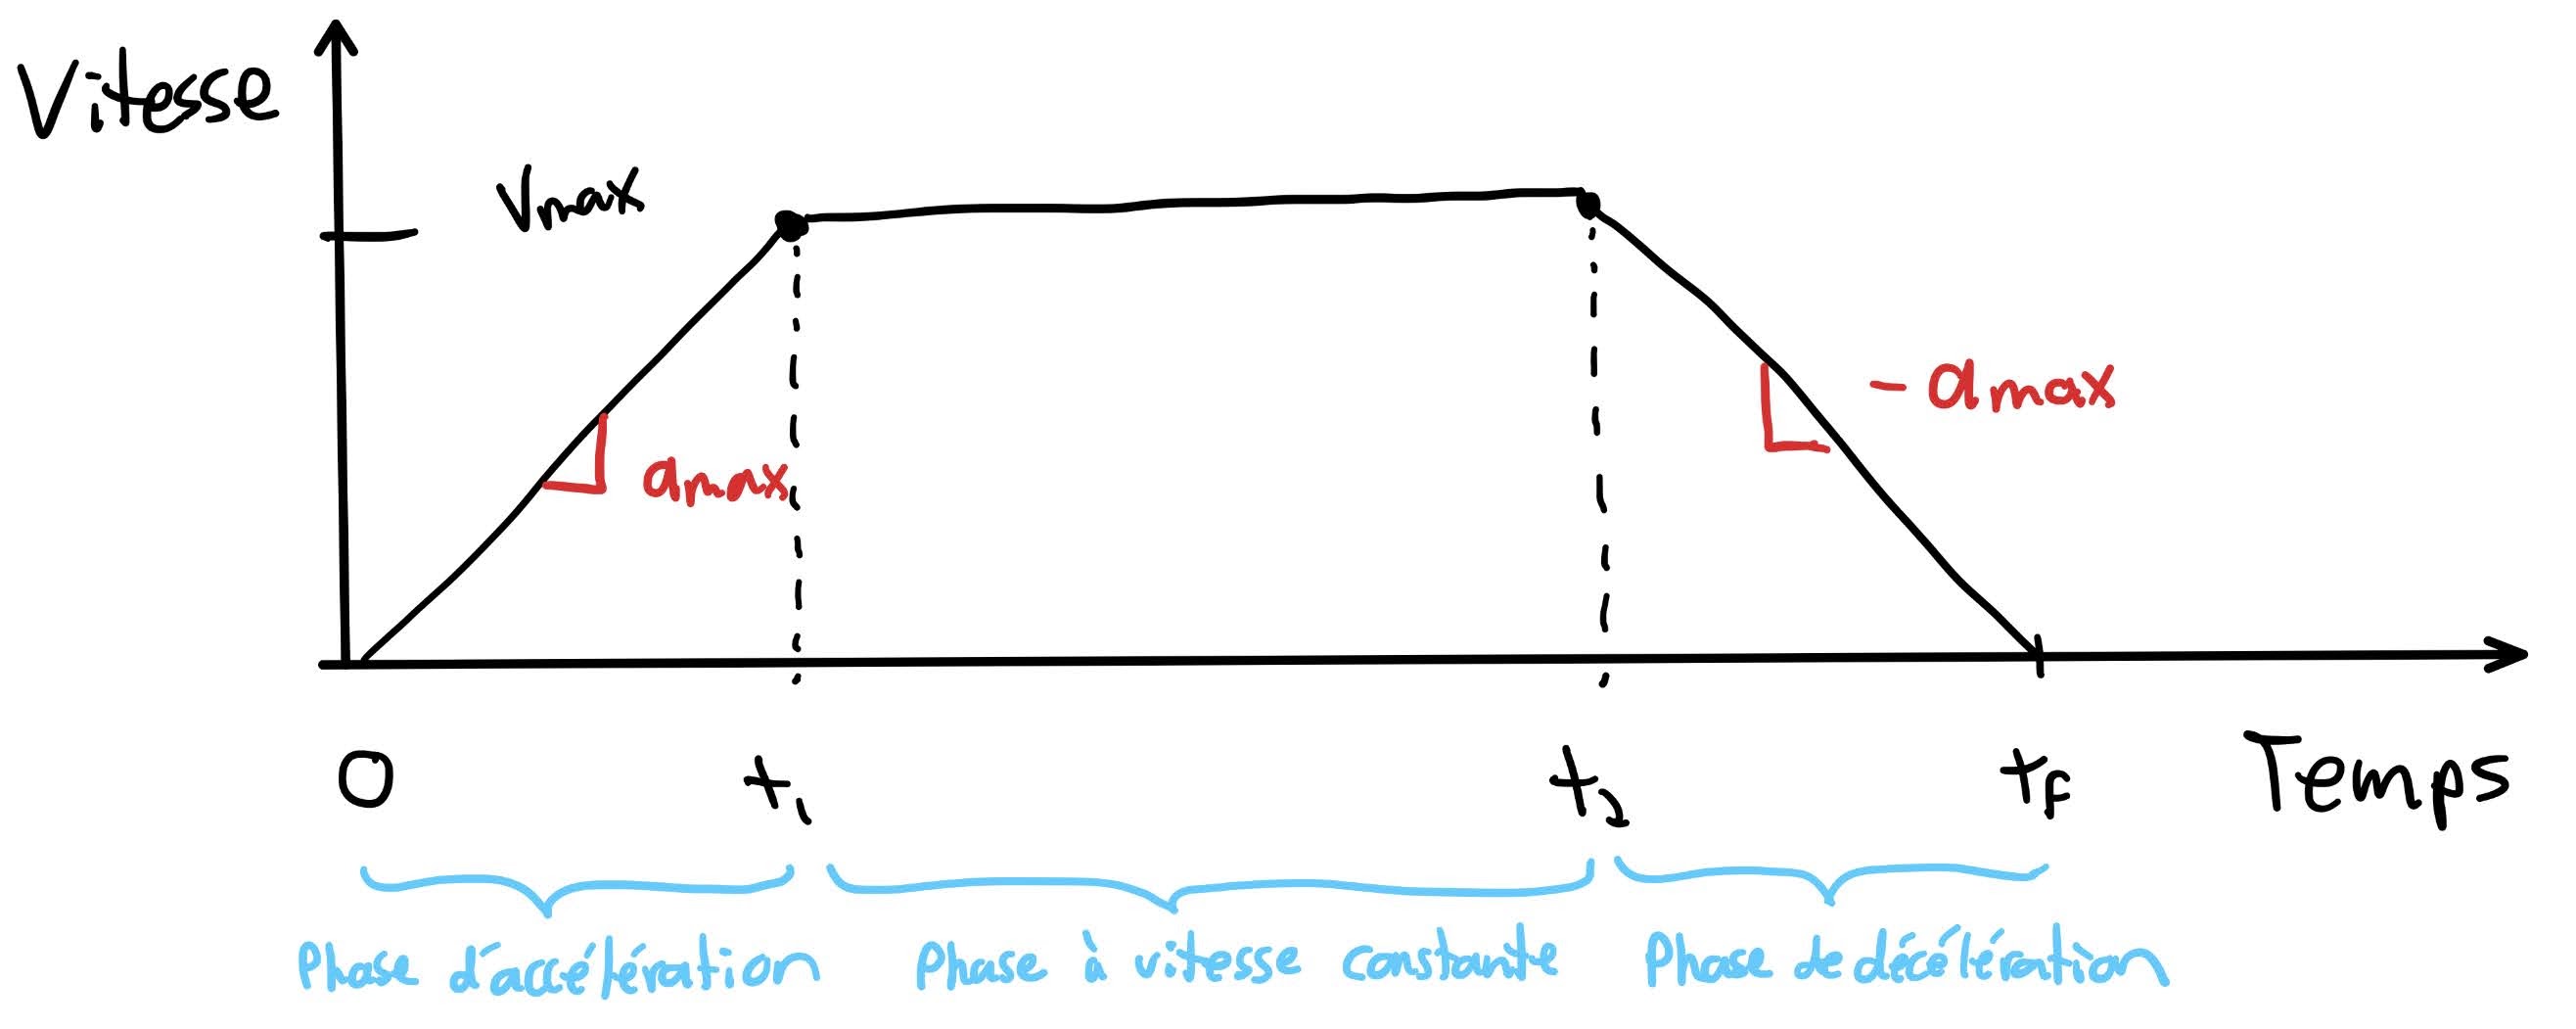 Vitesse
Vmax
amax
- amax
0 t1 t2 tf Temps
Phase d'accélération Phase à vitesse constante Phase de décélération